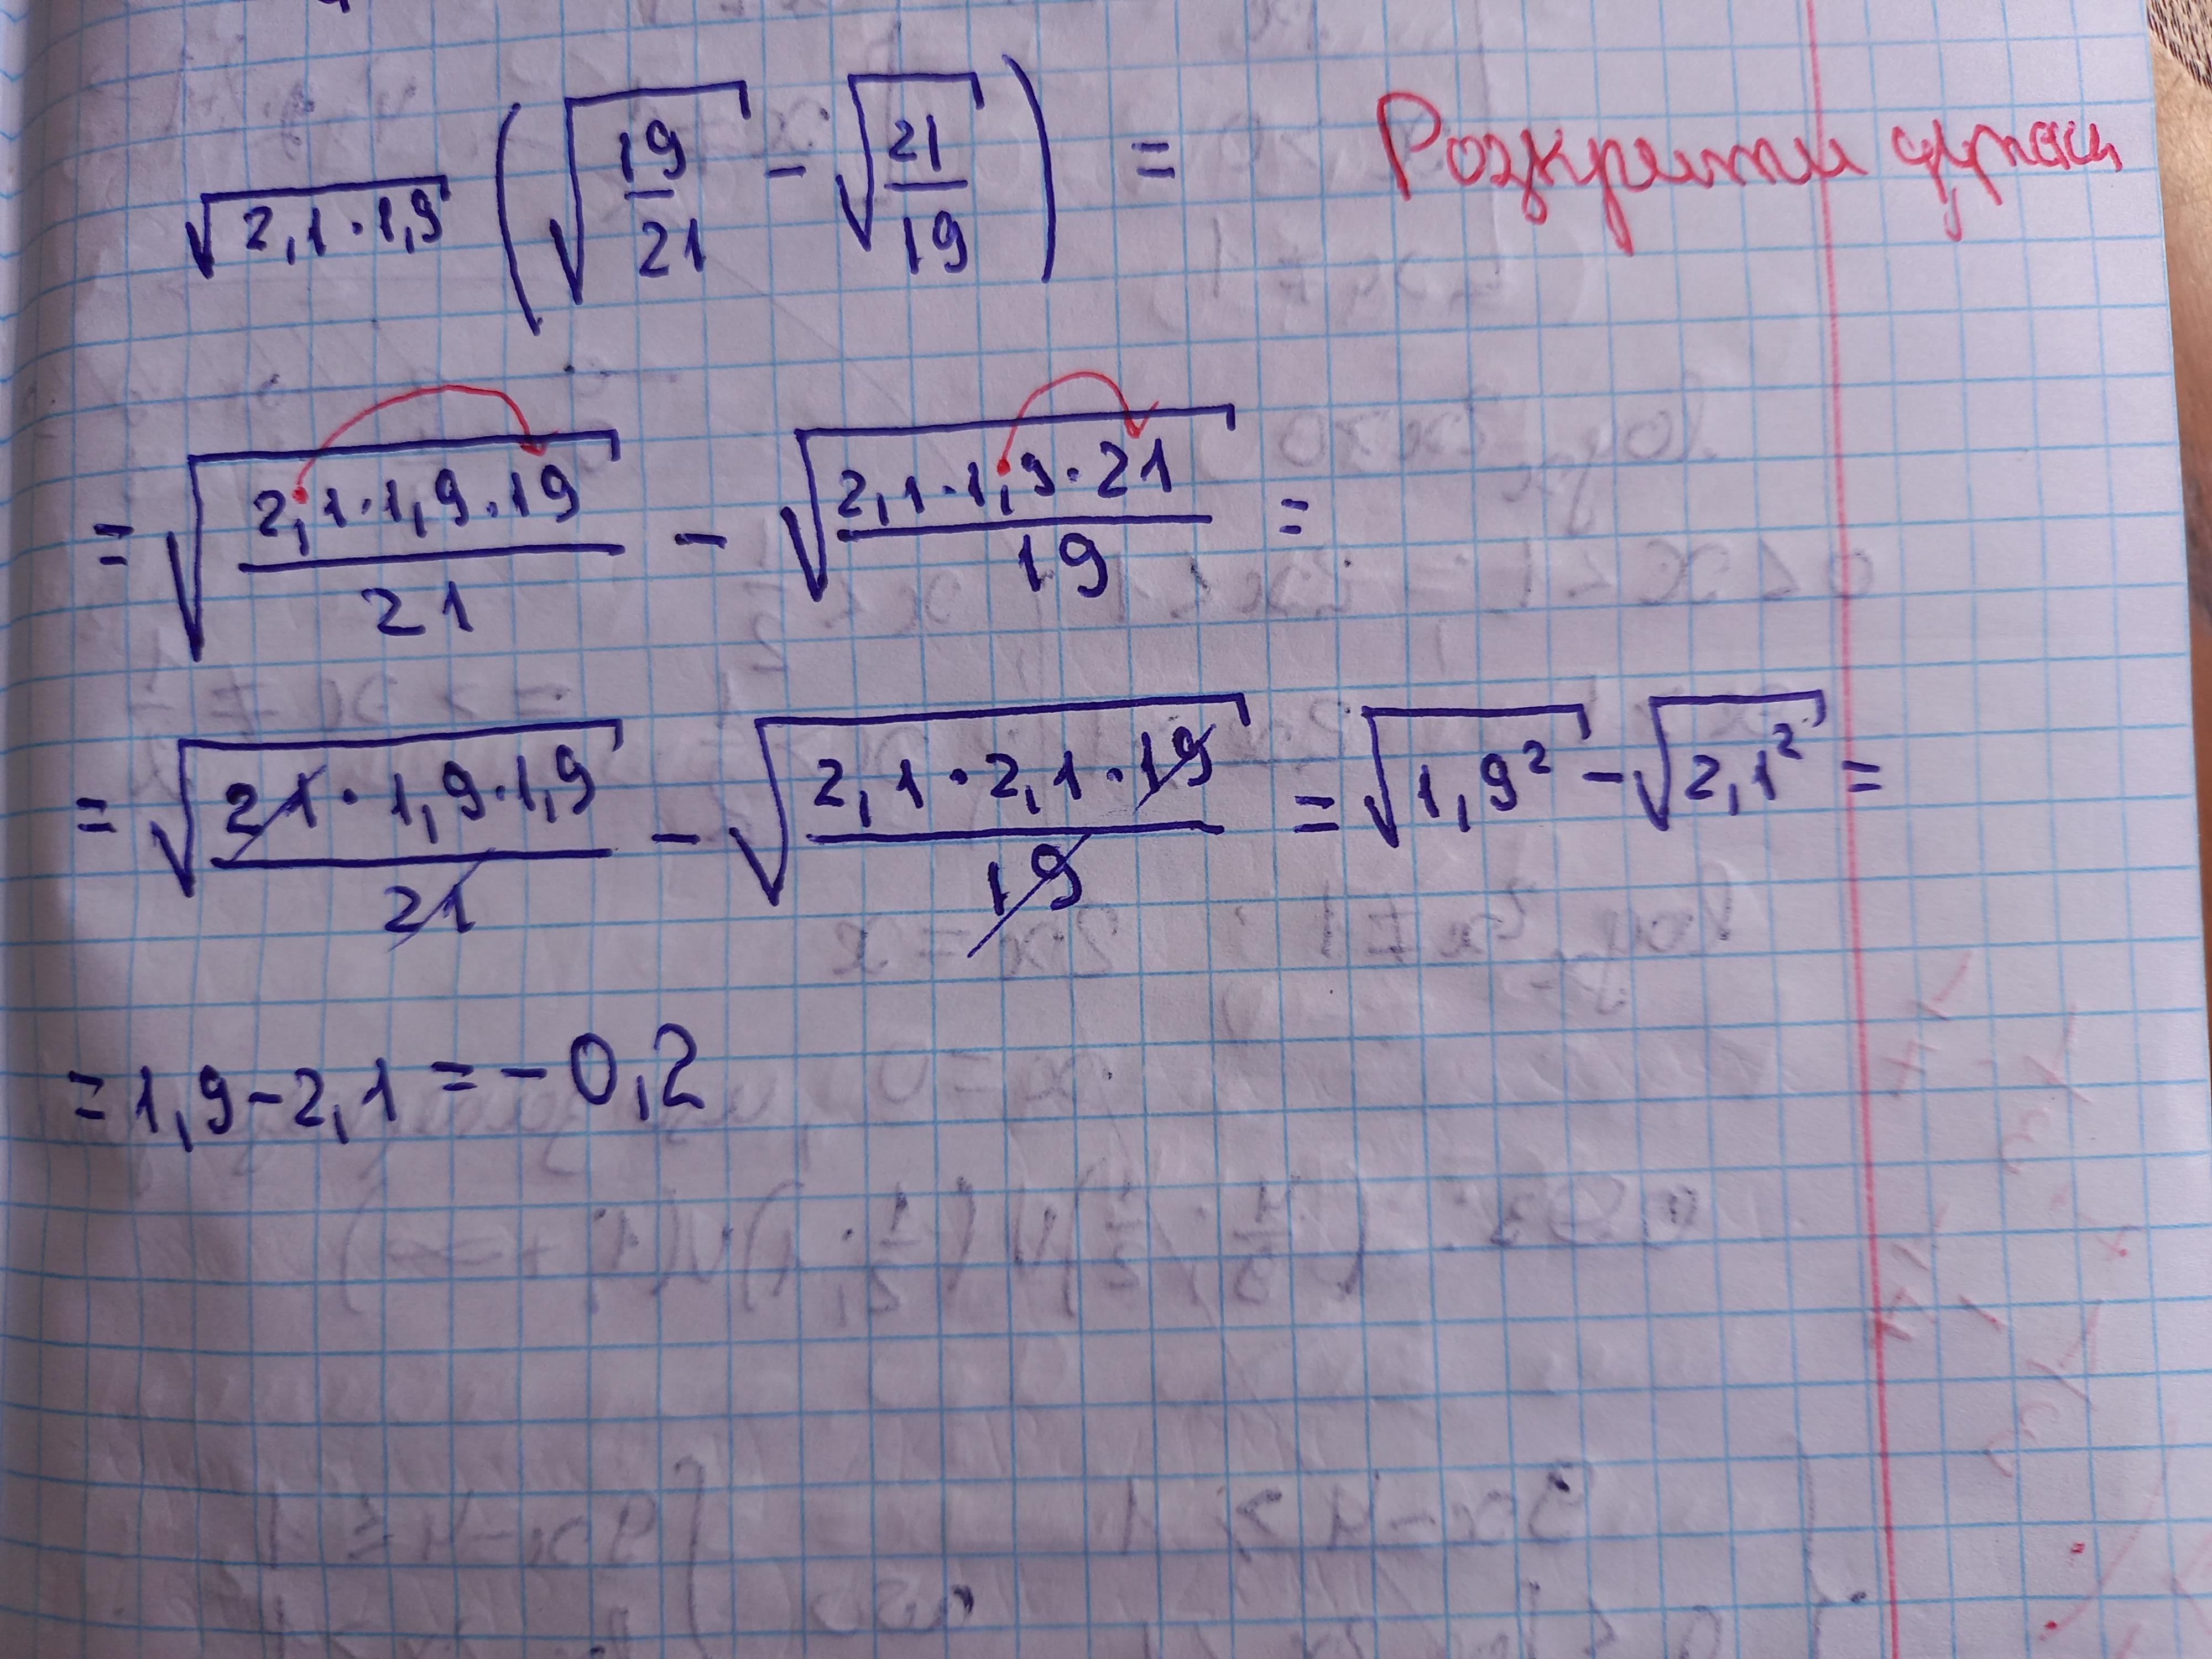 √(2,1·1,9) (√(19/21) - √(21/19)) = Розкрити дужки
= √((2,1·1,9·19)/21) - √((2,1·1,9·21)/19) =
= √((21·1,9·1,9)/21) - √((2,1·2,1·19)/19) = √(1,9²) - √(2,1²) =
= 1,9 - 2,1 = -0,2